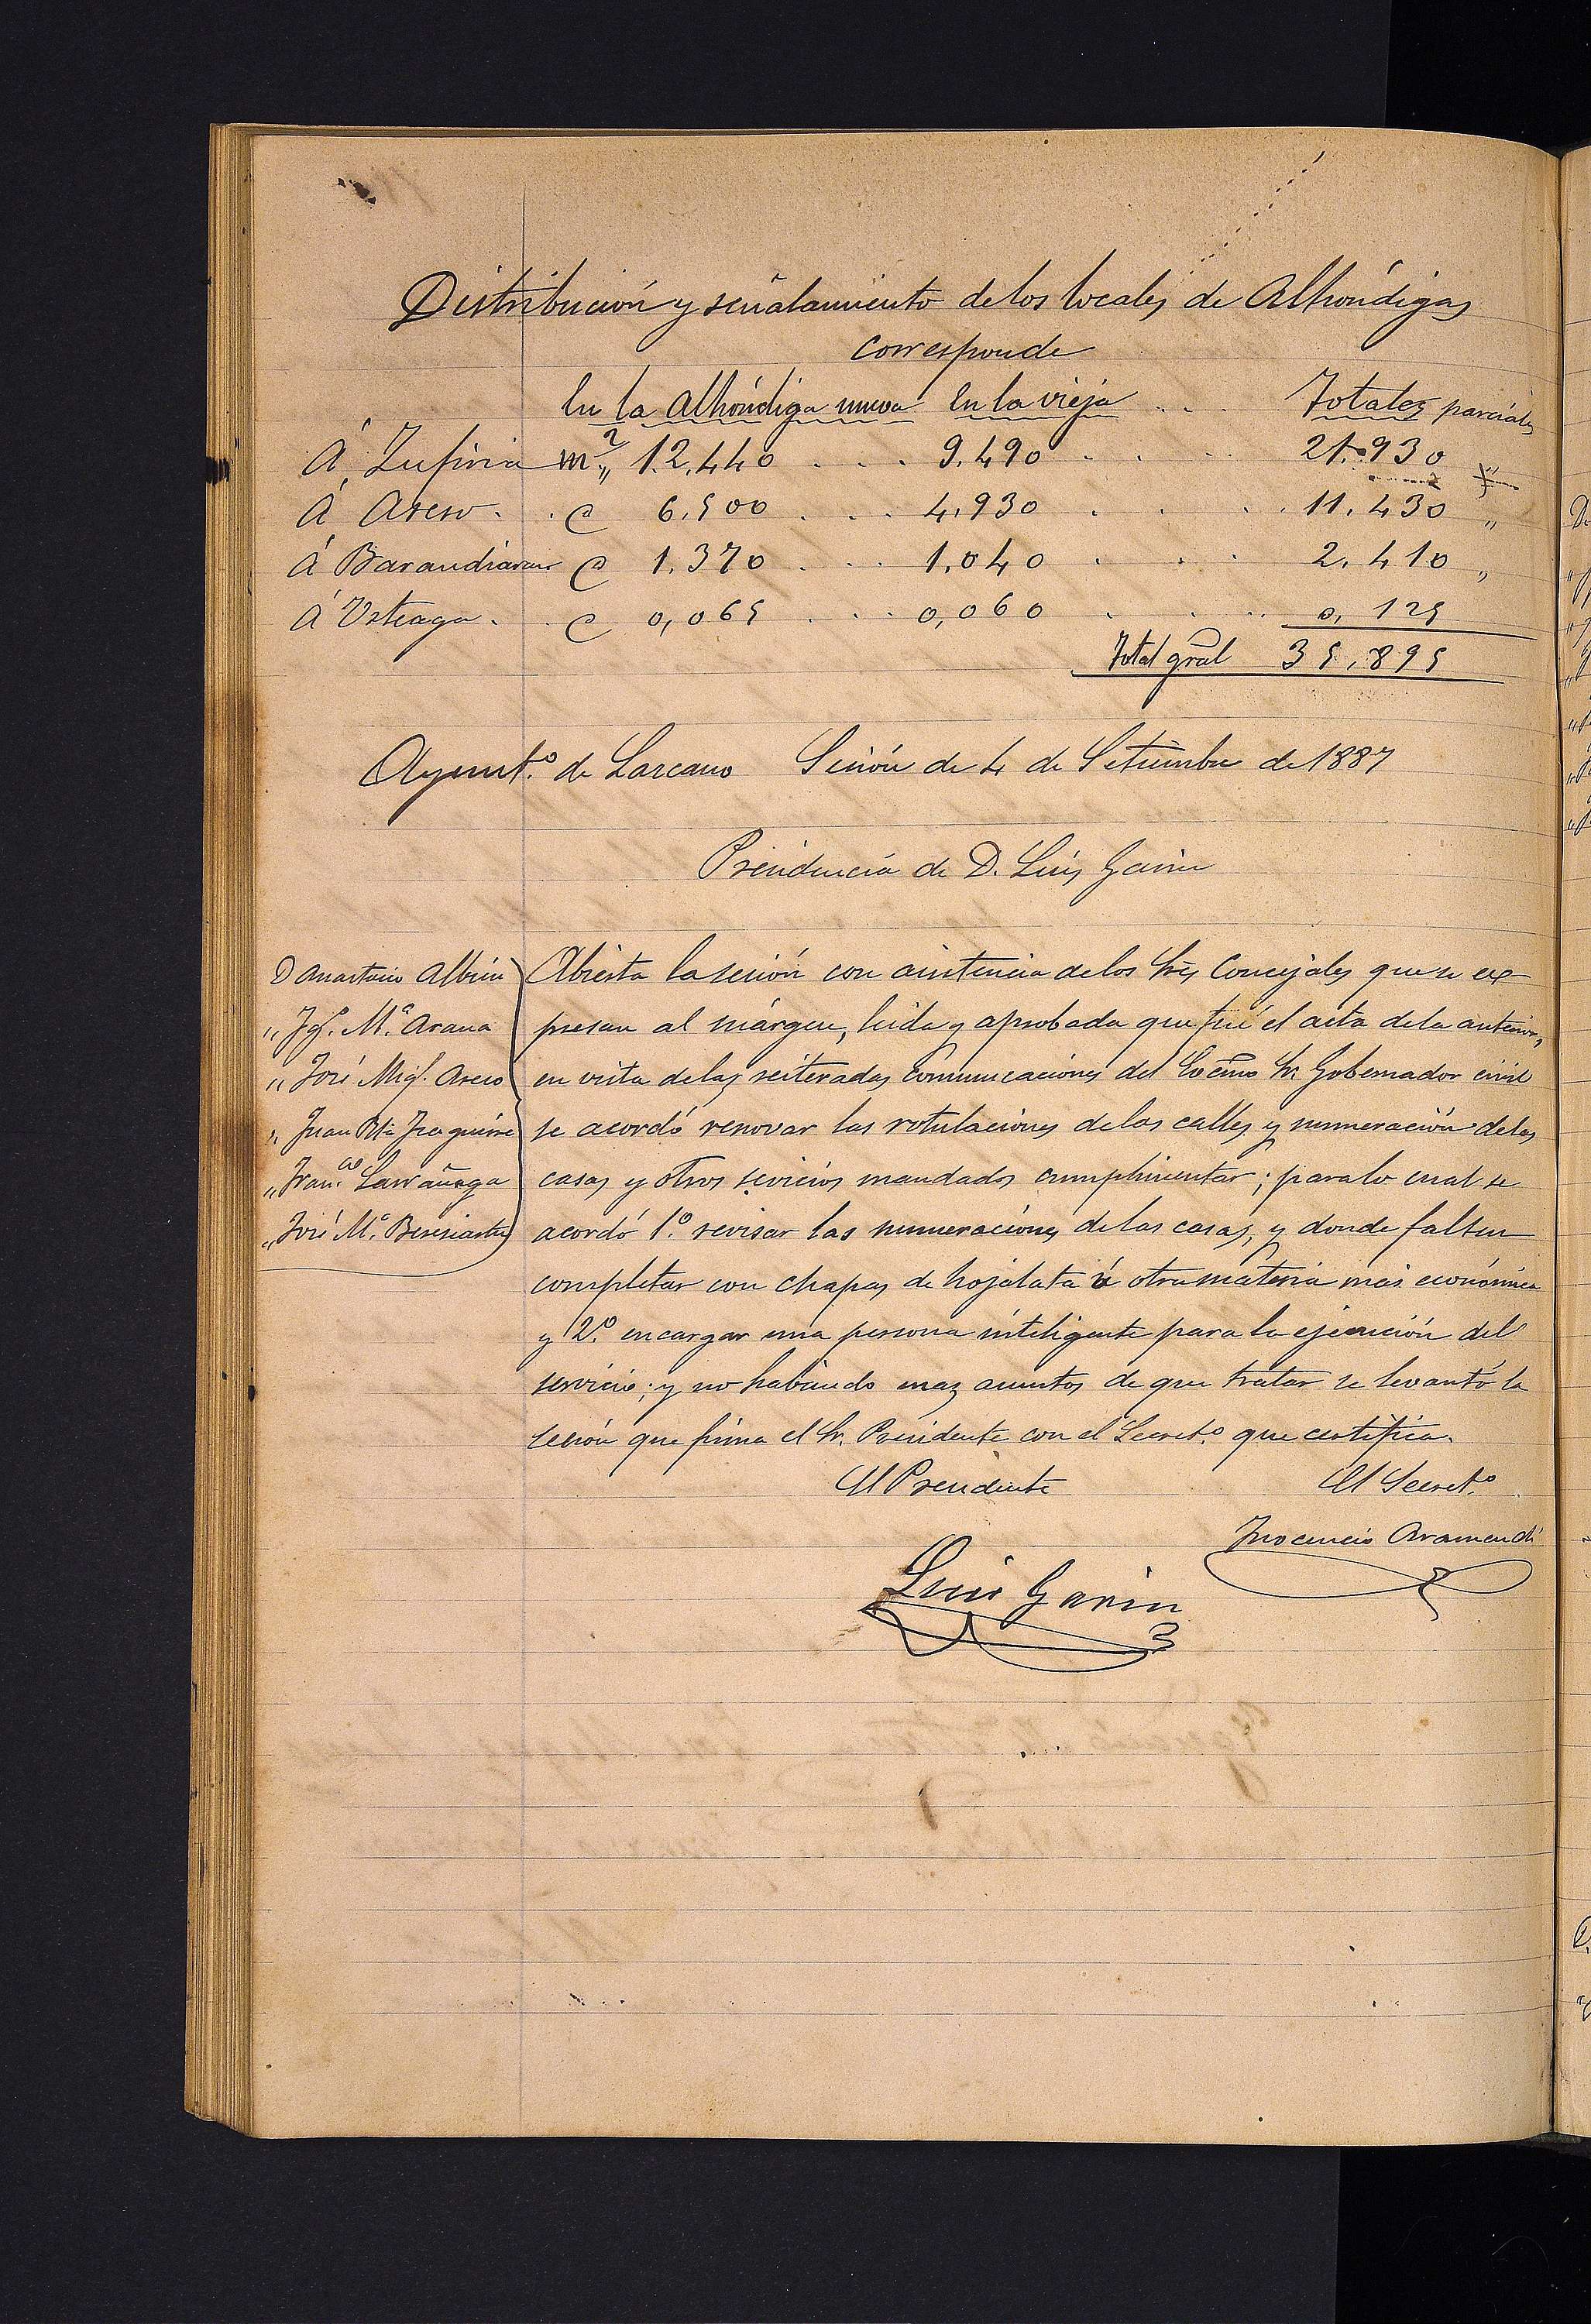 Distribución y señalamiento de los locales de Alhóndigas
corresponde
En la Alhóndiga nueva En la vieja . . . Totales parciales
Á Zufiria m² „ 12.440 . . . . 9.490 . . . 21.930 „
Á Aseso . . @ 6.500 . . . 4.930 . . . 11.430 „
Á Barandiaran @ 1.370 . . . 1.040 . . . 2.410 „
Á Usteaga . . @ 0,065 . . . 0,060 . . . 0,125
Total gral 35,895
Ayunt.º de Lazcano Sesión de 4 de Setiembre de 1887
Presidencia de D. Luis Garin
D Anastasio Albisu
„ Jq.º M.ª Arana
„ José Migl. Aseso
„ Juan Bta Izaguirre
„ Fran.co Larrañaga
„ José M.ª Beresiartu
Abierta la sesión con asistencia de los Sres Concejales que se ex
presan al márgen, leida y aprobada que fué el acta de la anterior,
en vista de las reiteradas comunicaciones del Excmo Sr. Gobernador civil
se acordó renovar las rotulaciones de las calles y numeración de las
casas y otros sevicios mandados cumplimentar; para lo cual se
acordó 1.º revisar las numeraciones de las casas, y donde falten
completar con chapas de hojalata ú otra materia más económica
y 2.º encargar una persona inteligente para la ejecución del
servicio; y no habiendo maz asuntos de que tratar se levantó la
sesión que firma el Sr. Presidente con el Secret.º que certifica.
El Presidente El Secret.º
Inocencio Aramendi
Luis Garin